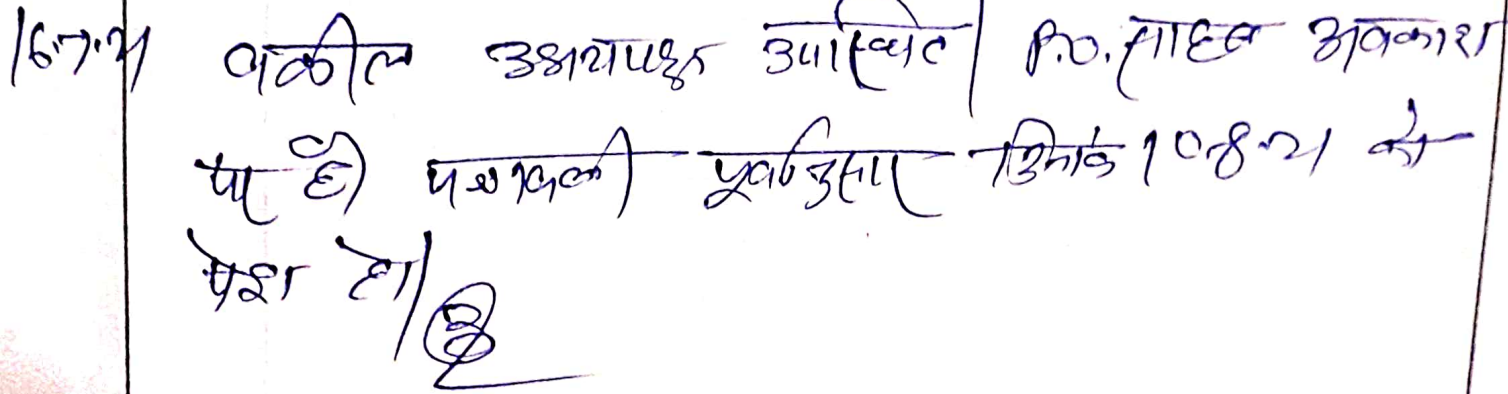 16.7.21 वकील उभयपक्ष उपस्थित। P.O. साहब अवकाश
पर है। पत्रावली पूर्वानुसार दिनांक 10.8.21 को
पेश हो।